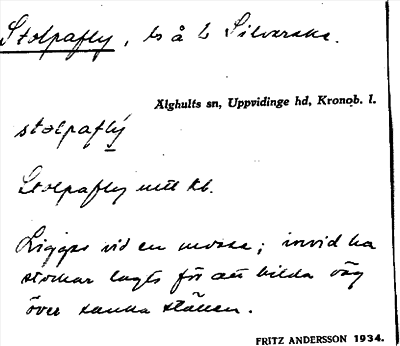 Stolpafly, ts å L Silverska.
Älghults sn, Uppvidinge hd, Kronob. l.
stolpaflý
Stolpafly mitt kb.
Ligger vid en mosse; invid ha
stockar lagts för att bilda väg
över sanka ställen.
FRITZ ANDERSSON 1934.